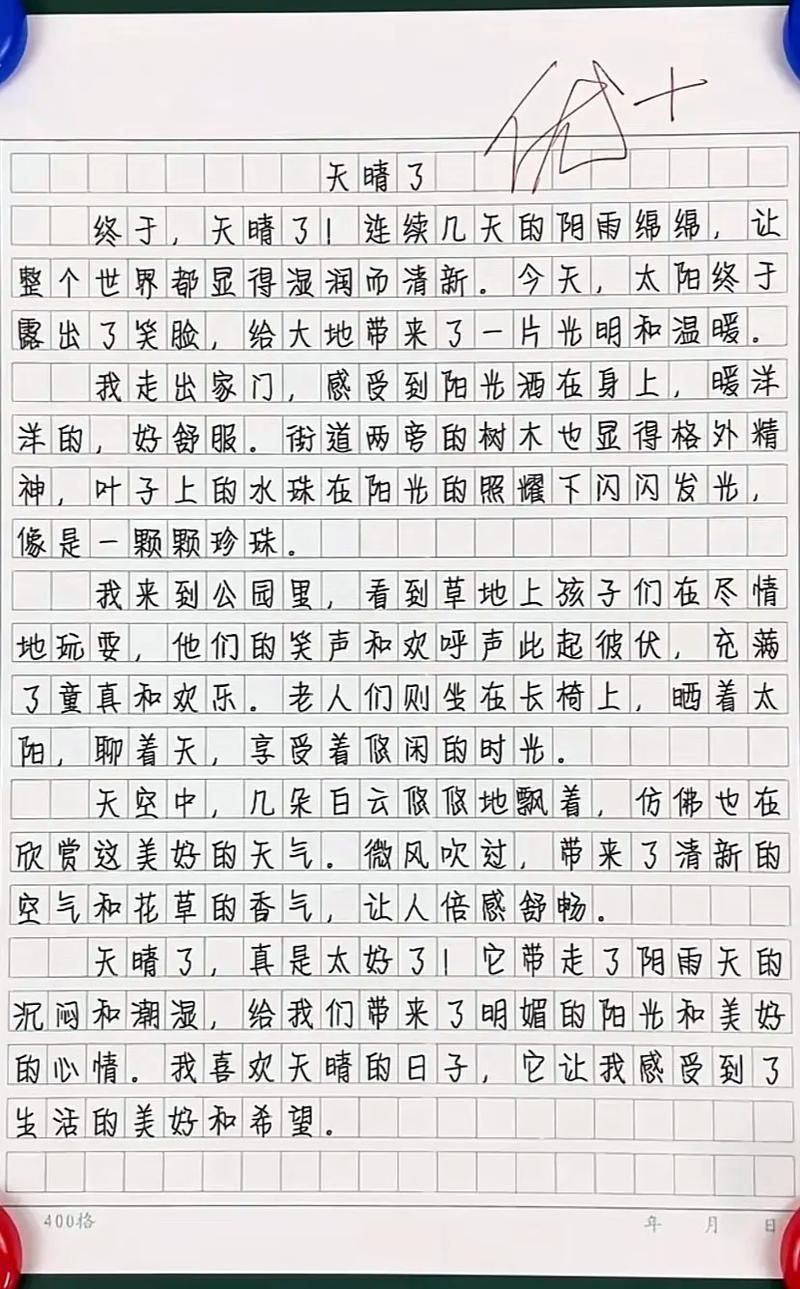 优+
天晴了
终于，天晴了！连续几天的阴雨绵绵，让
整个世界都显得湿润而清新。今天，太阳终于
露出了笑脸，给大地带来了一片光明和温暖。
我走出家门，感受到阳光洒在身上，暖洋
洋的，好舒服。街道两旁的树木也显得格外精
神，叶子上的水珠在阳光的照耀下闪闪发光，
像是一颗颗珍珠。
我来到公园里，看到草地上孩子们在尽情
地玩耍，他们的笑声和欢呼声此起彼伏，充满
了童真和欢乐。老人们则坐在长椅上，晒着太
阳，聊着天，享受着悠闲的时光。
天空中，几朵白云悠悠地飘着，仿佛也在
欣赏这美好的天气。微风吹过，带来了清新的
空气和花草的香气，让人倍感舒畅。
天晴了，真是太好了！它带走了阴雨天的
沉闷和潮湿，给我们带来了明媚的阳光和美好
的心情。我喜欢天晴的日子，它让我感受到了
生活的美好和希望。
400格 年 月 日